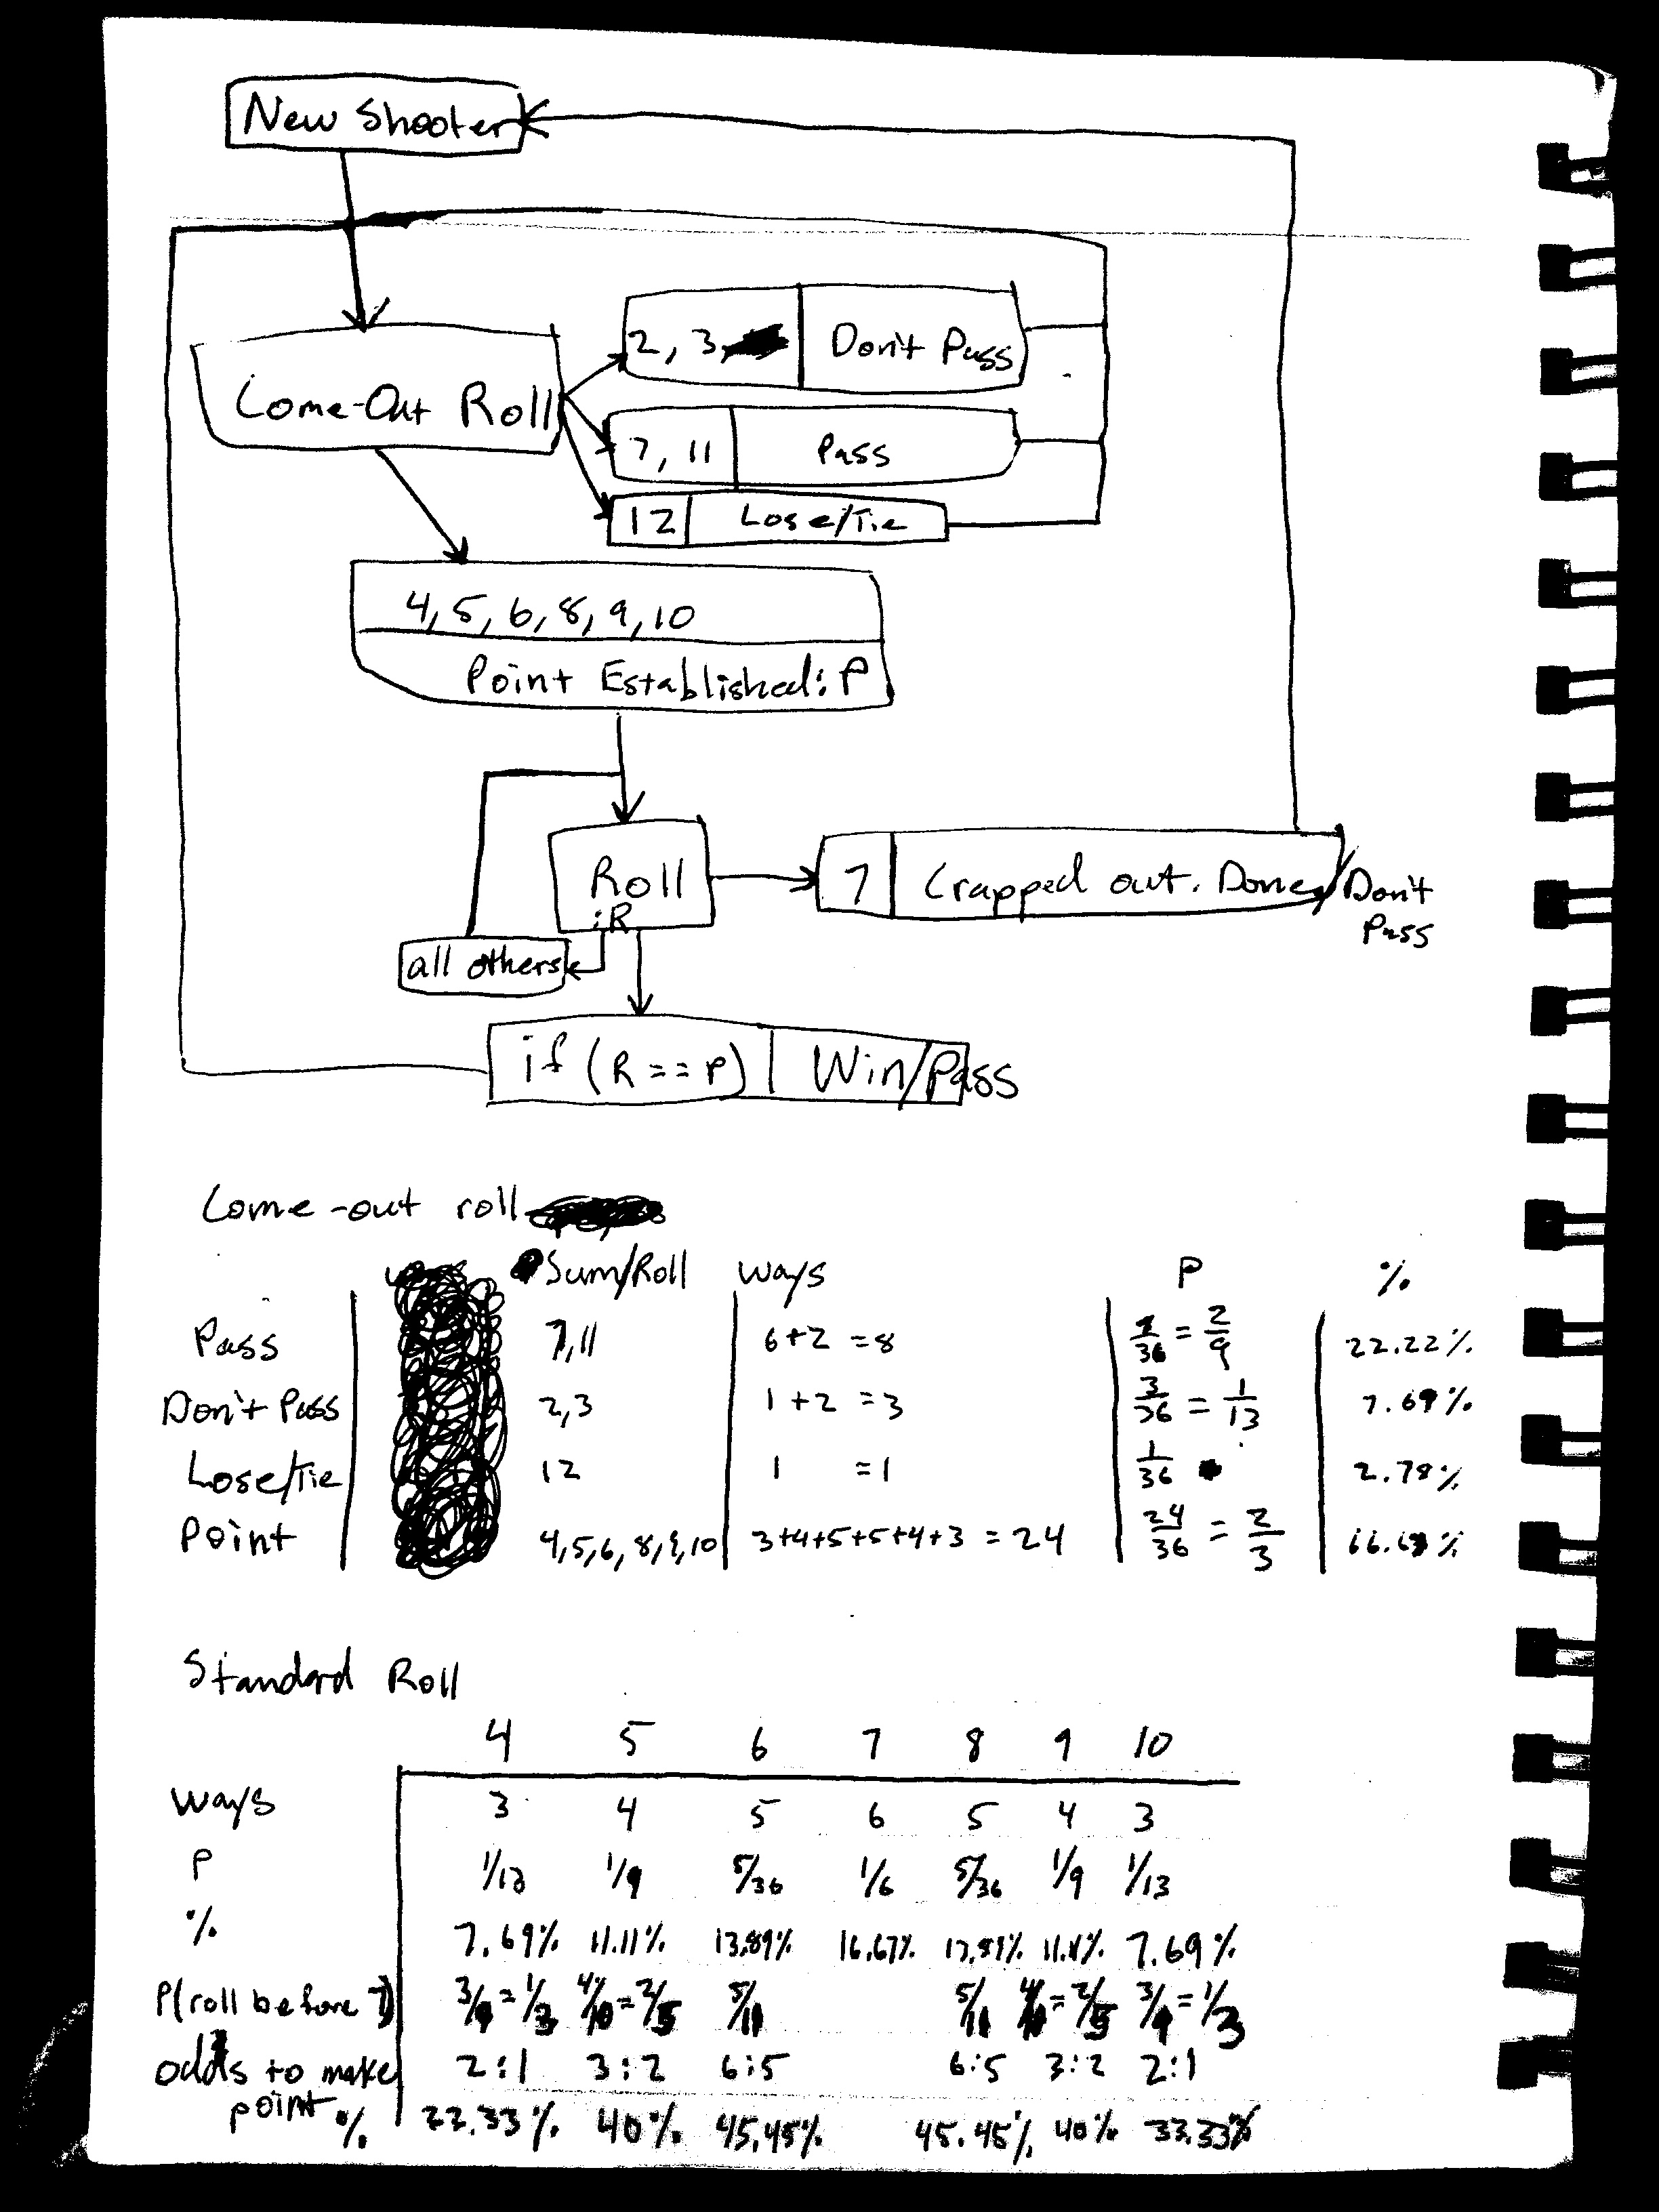 New Shooter
2, 3, Don't Pass
Come-Out Roll
7, 11 Pass
12 Lose/Tie
4, 5, 6, 8, 9, 10
Point Established: P
Roll 7 Crapped out. Done/Don't
:R Pass
all others
if (R == P) Win/Pass
Come-out roll
Sum/Roll Ways P %
Pass 7, 11 6+2 = 8 8/36 = 2/9 22.22%
Don't Pass 2, 3 1+2 = 3 3/36 = 1/13 7.69%
Lose/Tie 12 1 = 1 1/36 2.78%
Point 4, 5, 6, 8, 9, 10 3+4+5+5+4+3 = 24 24/36 = 2/3
Standard Roll
4 5 6 7 8 9 10
Ways 3 4 5 6 5 4 3
P 1/13 1/9 5/36 1/6 5/36 1/9 1/13
% 7.69% 11.11% 13.89% 16.67% 13.89% 11.11% 7.69%
P(roll before 7) 3/9 = 1/3 4/10 = 2/5 5/11 5/11 4/10 = 2/5 3/9 = 1/3
odds to make 2:1 3:2 6:5 6:5 3:2 2:1
point % 40% 45.45% 45.45% 40% 33.33%